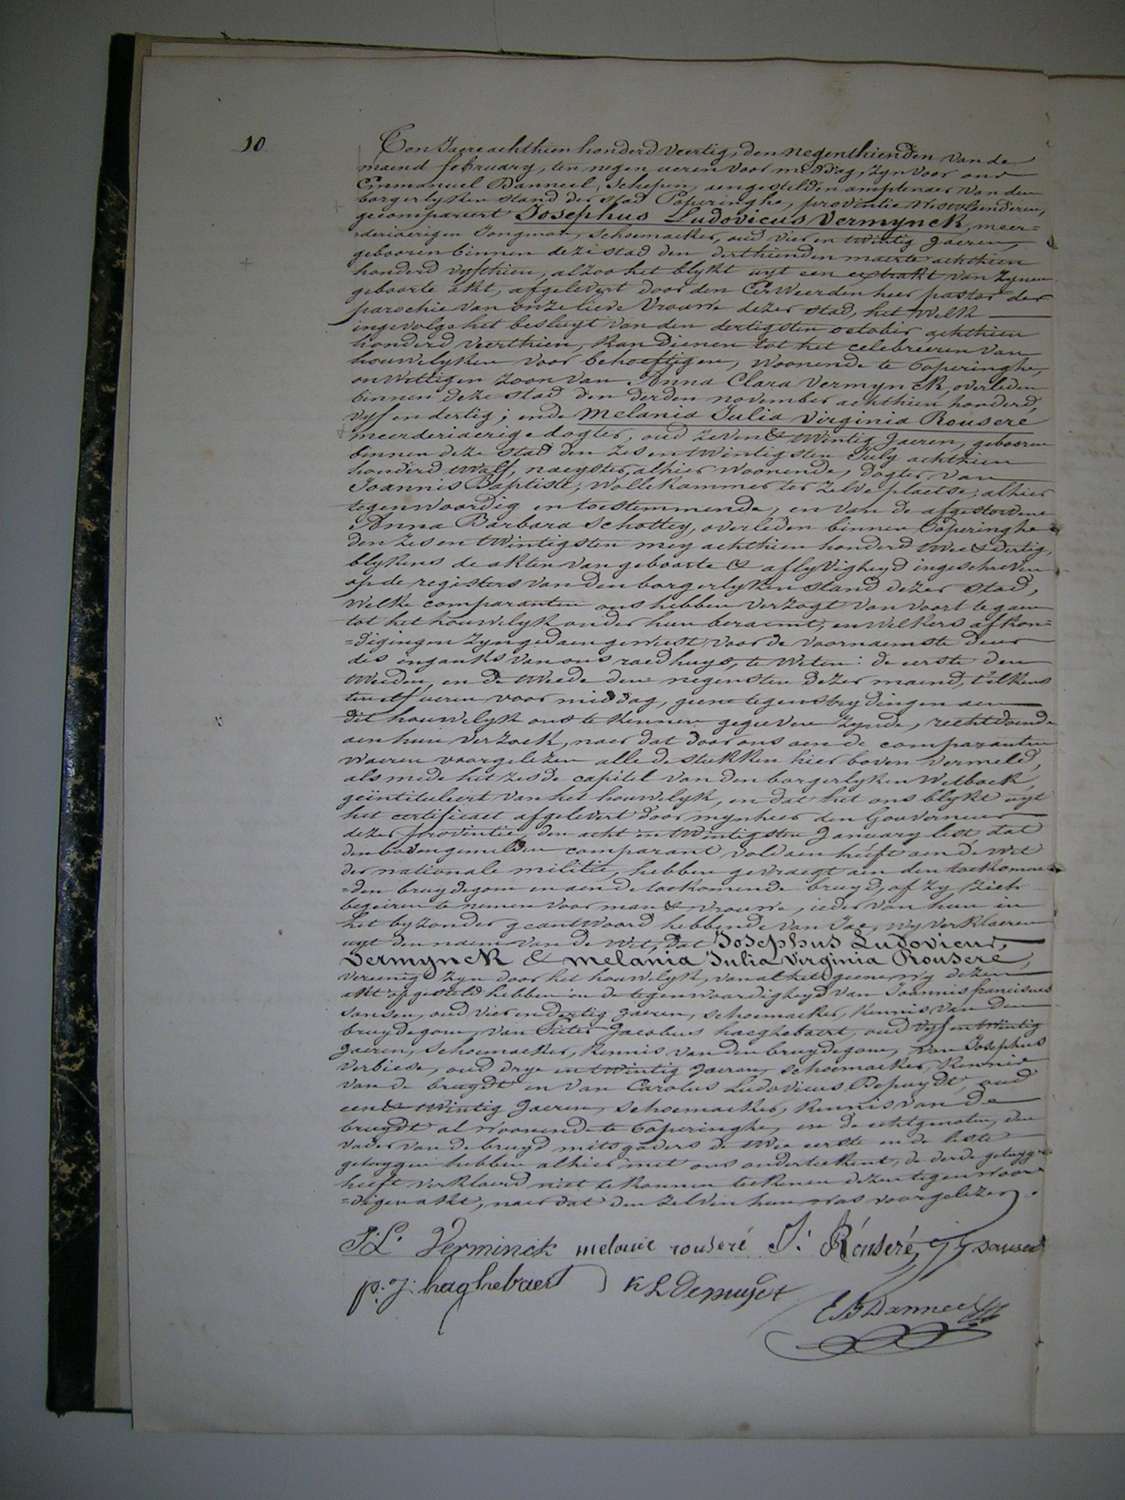 10
Ten Jaere achthien honderd veertig, den negenthienden van de
maend february, ten negen ueren voor middag, zyn voor ons
Emmanuel Banneel, Schepen, aengestelden amptenaer van den
borgerlyken stand der stad Poperinghe, provintie Westvlaenderen,
gecompareert Josephus Ludovicus Vermynck, meer=
=deriaerigen Jongman, Schoemacker, oud vier en twintig Jaeren,
gebooren binnen deze stad den derthienden maerte achthien
honderd vyfthien, alzoo het blykt uyt een extrakt van zynen
geboorte akt, afgelevert door den Eerweerden heer pastor der
parochie van onze lieve Vrouwe dezer stad, het welk
ingevolge het besluyt van den dertigsten october achthien
honderd veerthien, kan dienen tot het celebreeren van
houwelyken voor behoeftigen, woonende te Poperinghe,
onwettigen zoon van Anna Clara Vermynck, overleden
binnen deze stad den derden november achthien honderd
vyf en dertig; ende Melania Julia Virginia Rouseré
meerderiaerige dogter, oud zeven & twintig Jaeren, gebooren
binnen deze stad den zes en twintigsten July achthien
honderd twalf, naeyster, alhier woonende, dogter van
Joannis Baptiste, wollekammer ter zelve plaetse, alhier
tegenwoordig en toestemmende, en van de afgestorvene
Anna Barbara Schottey, overleden binnen Poperinghe
den zes en twintigsten mey achthien honderd twee & dertig,
blykens de akten van geboorte & aflyvigheyd ingeschreven
op de registers van den borgerlyken stand dezer stad,
welke comparanten ons hebben verzogt van voort te gaen
tot het houwelyk onder hun beraemt, en welkers afkon=
=digingen zyn gedaen geweest voor de voornaemste deur
des ingangs van ons raedhuys, te weten: de eerste den
tweeden, en de tweede den negensten dezer maend, telkens
ten elf ueren voor middag, geene tegenstrydingen aen
dit houwelyk ons te kennen gegeven zynde, rechtdoende
aen hun verzoek, naer dat door ons aen de comparanten
waeren voorgelezen alle de stukken hier boven vermeld,
als mede het zesde capitel van den borgerlyken Wetboek,
geïntituleert van het houwelyk, en dat het ons blykt uyt
het certificaet afgelevert door mynheer den Gouverneur
dezer provintie, den acht en twintigsten January lest, dat
den bovengemelden comparant voldaen heeft aen de wet
der nationale militie, hebben gevraegt aen den toekomen=
=den bruydegom en aen de toekomende bruyd, of zy zich
begeiren te nemen voor man & vrouwe, ieder van hun in
het byzonder geantwoord hebbende van Jae, wy verklaeren
uyt den naem van de Wet, dat Josephus Ludovicus
Vermynck & Melania Julia Virginia Rouseré,
vereenigt zyn door het houwelyk, van al het geene wy dezen
akt opgesteld hebben in de tegenwoordigheyd van Joannis franciscus
Sansen, oud vier en dertig Jaeren, schoemacker, kennis van den
bruydegom, van Pieter Jacobus haeghebaert, oud vyf en twintig
Jaeren, schoemacker, kennis van den bruydegom, van Josephus
Verbiese, oud drye en twintig Jaeren, schoemacker, kennis
van de bruydt en van Carolus Ludovicus Depuydt, oud
een & twintig Jaeren, schoemacker, kennis van de
bruydt al woonende te Poperinghe, en de echtgenoten, den
vader van de bruyd mitsgaders de twee eerste en de leste
getuygen hebben alhier met ons onderteekent, de derde getuyge
heeft verklaerd niet te konnen teekenen dezen tegenwoor=
=digen akt, naer dat den zelven hun was voorgelezen.
J: L. Verminck melanie rouseré J: Réuseré, j f sansen
p: j: haghebaert K L Depuydt
E Banneel